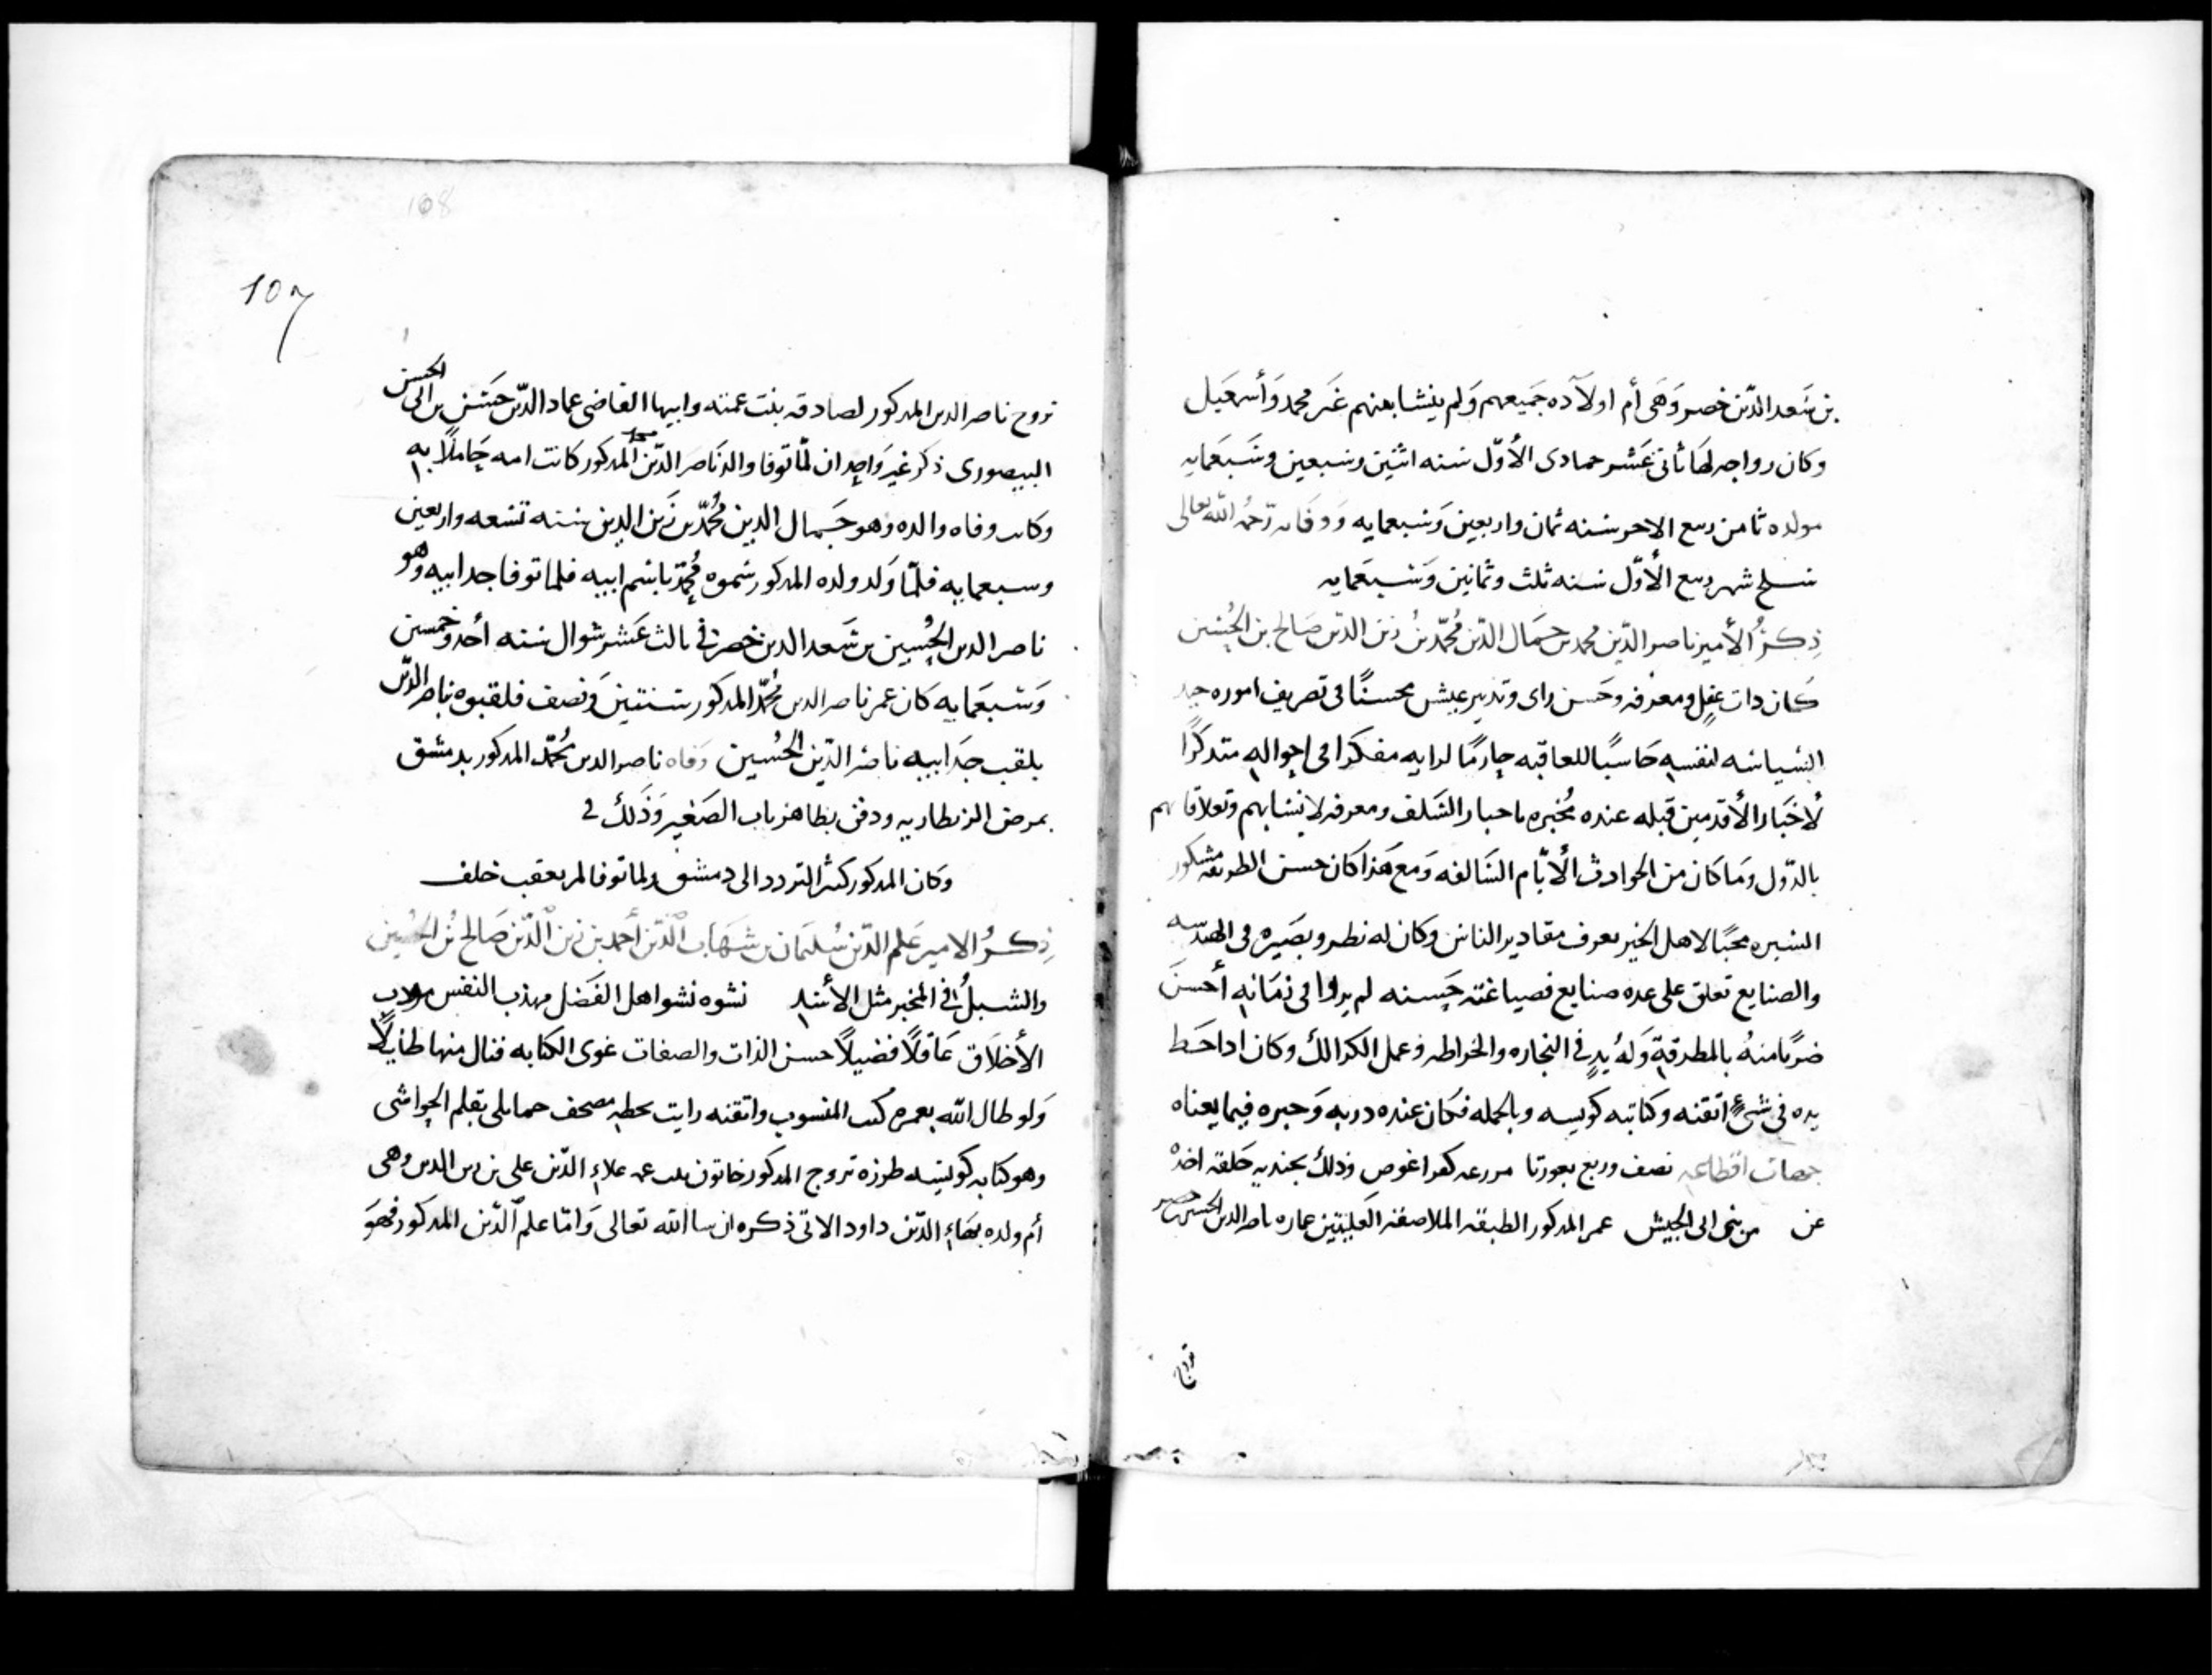 بن سَعد الدّين خضر وَهَى أم اولاَده جَميعهم وَلم ينشا بعنهم غَير محمد وَأسمَعيل
وكان رواجه لهَا ثانى عَشر حمادى الأوّل سنه اثنين وسبعين وسَبعَمايه
مولده ثامن ربيع الاخر سنه ثمان واربعين وَسبعمايه وَوفاته رَحمُه الله تعالى
سلح شهر ربيع الأوّل سنه ثلث وثمانين وَسَبعَمايه
ذِكرُ الأمير ناصر الدّين محمد بن جَمَال الدّين مُحمّد بنُ زين الدّين صَالح بن الحُسين
كَان ذات عقلٍ ومعرفه وحَسن راى وتدبير عيش محسنًا فى تصريف اموره جيد
السّياسه لنفسهِ حَاسبًا للعاقبه حارمًا لرايه مفكرا فى احوالهِ متدكرًا
لأخبَار الأقدمين قبله عنده مُخبره باحبار السَلف ومعرفه لانسابهم وتعلاقاتهم
بالدّول وَمَا كَان من الحوادث الأيّام السَالفه وَمع هَذا كان حسن الطريقه مشكور
السيره محبًا لاهل الخير يعرف مقادير الناس وكان له نظر وبصَيره فى الهندسه
والصنايع تعلق على عده صنايع فصياغته حَسنه لم يروا فى زمَانهِ أحسنَ
ضربًا منهُ بالمطرقةِ وَلهُ يدٍ فى النجاره والخراطه وعمل الكرالك وكان ادا حَط
يده فى شئٍ اتقنه وكتابته كويسه وبالجمله فكَان عنده دربه وَخبره فيما يعناه
جهات اقطاعه نصف وربع بعورتا مررعه كفرا غوص وذلك بجنديه حَلقه اخده
عن من بنى ابى الجيش عمر المدكور الطبقه الملاصقه العَليتين عماره ناصر الدين الحسين بن خضر
تزوج
107
108
تزوج ناصر الدين المدكور لصادقه بنت عمته وابيها القاضى عماد الدّين حَسَن بن ابى الحسن
البيصورى ذكر غير وَاحِدٍ ان لمّا توفا والد نَاصر الدّين محمد المدكور كانت امه حَاملاً بهِ
وكانت وفاه والده وَهو جَمال الدين مُحمّد بن زَين الدين سنه تسعه واربعين
وسبعمايه فلمّا وَلد ولده المدكور سَموه مُحمّد باسم ابيه فلما توفا جد ابيه وَهو
ناصر الدين الحُسين بن سَعد الدين خضر فى ثالث عَشر شوال سنه أحد وخمسين
وَسَبعَمايه كَان عمر ناصر الدين مُحمّد المدكور سنتين وَنصف فلقبوه ناصر الدّين
بلقب جَد ابيه ناصر الدّين الحُسين وَفاه ناصر الدين مُحمّد المدكور بدمشق
بمرض الزنطاريه ودفن بظاهر باب الصَغير وَذَلكَ فى
وكان المدكور كثير التردد الى دمشق ولما توفا لم يعقب خلف
ذِكرُ الامير عَلم الدّين سُليَمان بن شَهَاب الدّين أحمد بن زين الدّين صَالح بن الحُسين
والشبلُ فى المخبر مثل الأسَدِ نشوه نشوا هل الفَضل مهذب النفس مودب
الأخلاَق عَاقلاً فضيلاً حسن الذات والصفات غوى الكتابه فنال منها طايلاً
وَلو طال الله بعمره كتب المنسوب واتقنه رايت بخطه مصحف حمايلى بقلم الحواشى
وهو كتابه كويّسه طرزه تزوج المدكور خاتون بنت عمه علاء الدّين على بن زين الدين وهى
أم ولده بهَاءِ الدّين داود الاتى ذكره ان سا الله تعالى وَامّا علم الدّين المدكور فهَوَ